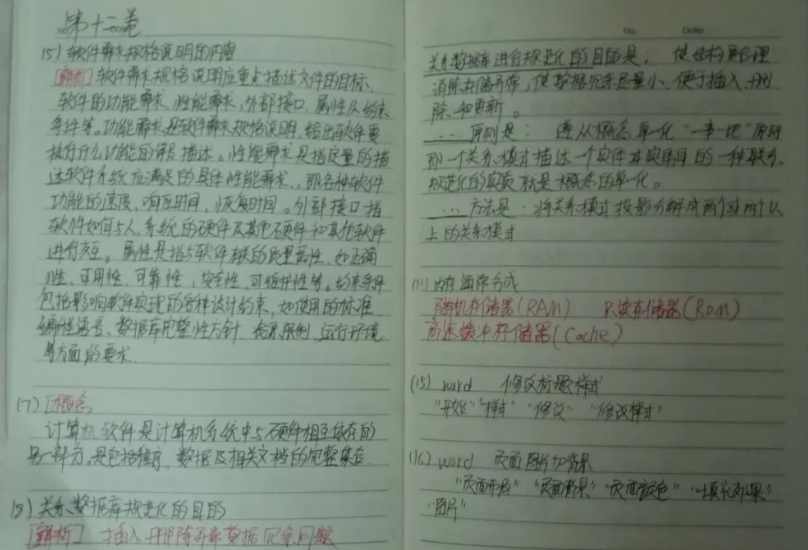 第十二卷
(5) 软件需求规格说明的内容
[解析] 软件需求规格说明应重点描述文件的目标、
软件的功能需求、性能需求、外部接口、属性及约束
条件等。功能需求是软件需求规格说明，给出软件要
执行什么功能的详尽描述。性能需求是指定量的描
述软件系统应满足的具体性能需求，即各种软件
功能的速度、响应时间、恢复时间。外部接口指
软件如何与人、系统的硬件及其他硬件和其他软件
进行交互。属性是指与软件有关的质量属性，如正确
性、可用性、可靠性、安全性、可维护性等。约束条件
包括影响软件实现的各种设计约束，如使用的标准
编程语言、数据库完整性方针、资源限制、运行环境
等方面的要求.
(7) [概念
计算机软件是计算机系统中与硬件相互依存的
另一部分。是包括程序、数据及相关文档的完整集合.
(8) 关系数据库规范化的目的
[解析] 插入 删除异常 数据冗余问题
No. Date.
关系数据库进行规范化的目的是： 使结构更合理
消除存储异常，使数据冗余尽量小、便于插入、删
除、和更新。
.... 原则是： 遵从概念单一化 "一事一地" 原则
即一个关系模式描述一个实体或实体间的一种联系.
规范化的实质就是概念的单一化。
.... 方法是：将关系模式投影分解成两个或两个以
上的关系模式
(11) 内存通常分成
随机存储器(RAM) 只读存储器(ROM)
高速缓冲存储器(Cache)
(15) word 修改标题样式
"开始" "样式" "修改" "修改样式"
(16) word 页面图片加背景
"页面布局" "页面背景" "页面颜色" "填充效果"
"图片"